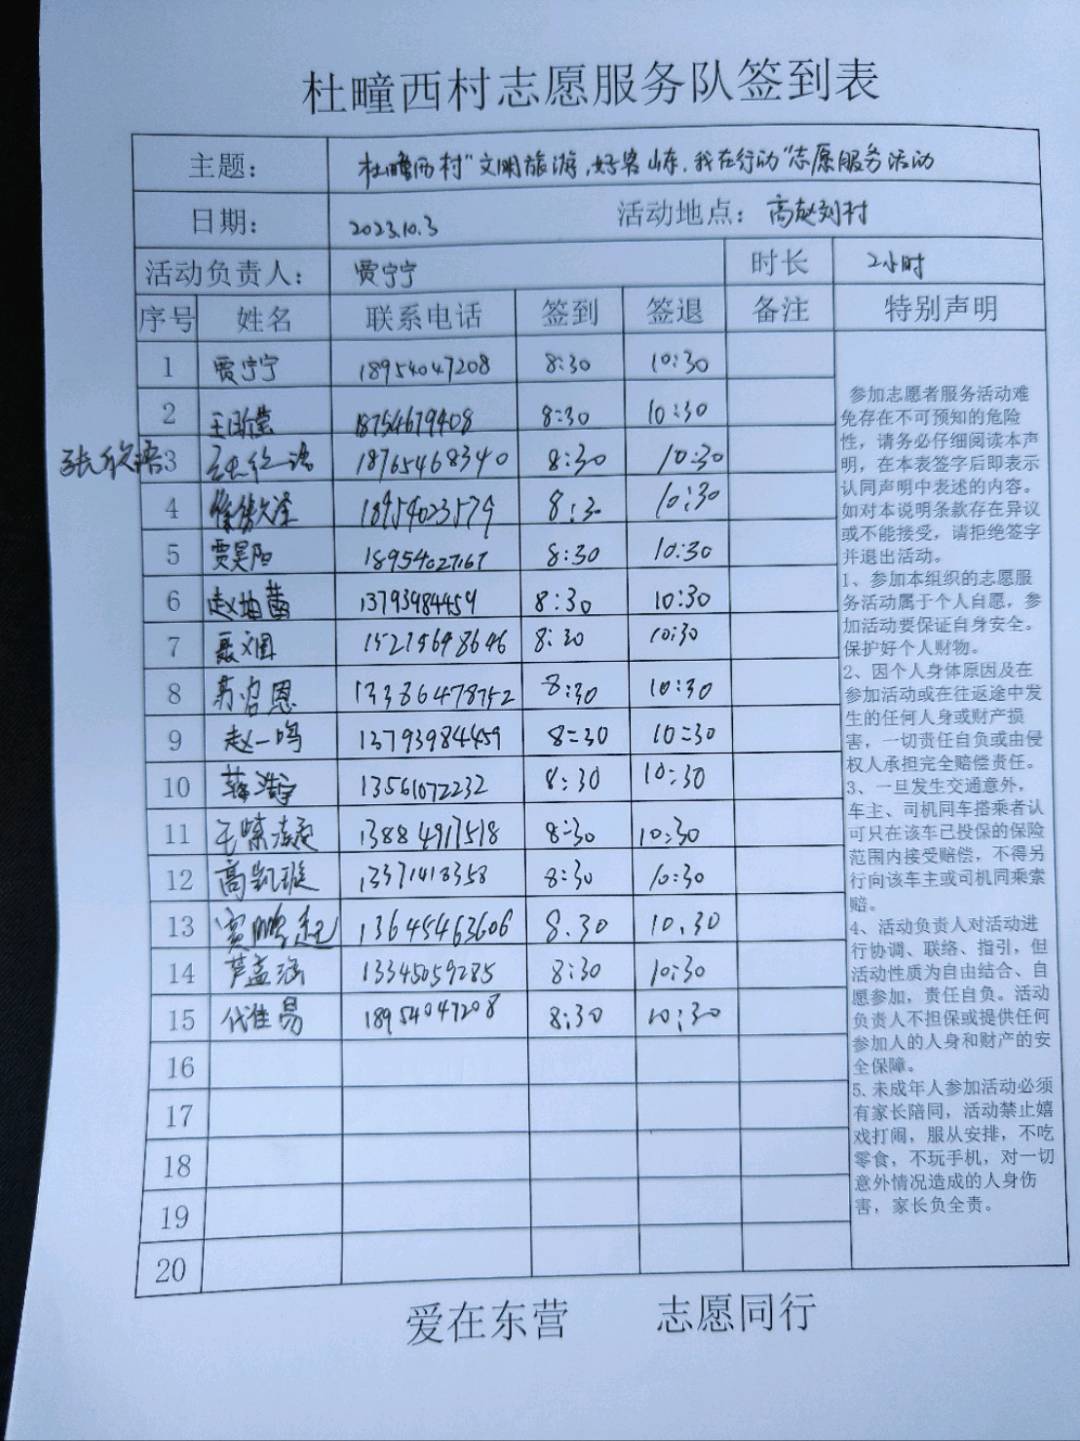 杜疃西村志愿服务队签到表
主题： 杜疃西村"文明旅游,好客山东,我在行动"志愿服务活动
日期： 2023.10.3 活动地点：高赵刘村
活动负责人： 贾宁宁 时长 2小时
序号 姓名 联系电话 签到 签退 备注 特别声明
1 贾宁宁 18954047208 8:30 10:30
2 18754679408 8:30 10:30
张欣语 3 18765468340 8:30 10:30
4 18954023579 8:30 10:30
5 贾昊阳 18954027167 8:30 10:30
6 13793984459 8:30 10:30
7 15275698646 8:30 10:30
8 苏召恩 13386478752 8:30 10:30
9 赵一鸣 13793984459 8=30 10=30
10 13561072232 8:30 10:30
11 13884917518 8:30 10:30
12 高凯璇 13371418358 8:30 10:30
13 13645463606 8.30 10.30
14 芦孟涵 13345059285 8:30 10:30
15 代佳易 18954047208 8:30 10:30
16
17
18
19
20
参加志愿者服务活动难
免存在不可预知的危险
性，请务必仔细阅读本声
明，在本表签字后即表示
认同声明中表述的内容。
如对本说明条款存在异议
或不能接受，请拒绝签字
并退出活动。
1、参加本组织的志愿服
务活动属于个人自愿，参
加活动要保证自身安全。
保护好个人财物。
2、因个人身体原因及在
参加活动或在往返途中发
生的任何人身或财产损
害，一切责任自负或由侵
权人承担完全赔偿责任。
3、一旦发生交通意外，
车主、司机同车搭乘者认
可只在该车已投保的保险
范围内接受赔偿，不得另
行向该车主或司机同乘索
赔。
4、活动负责人对活动进
行协调、联络、指引，但
活动性质为自由结合、自
愿参加，责任自负。活动
负责人不担保或提供任何
参加人的人身和财产的安
全保障。
5.未成年人参加活动必须
有家长陪同，活动禁止嬉
戏打闹，服从安排，不吃
零食，不玩手机，对一切
意外情况造成的人身伤
害，家长负全责。
爱在东营 志愿同行